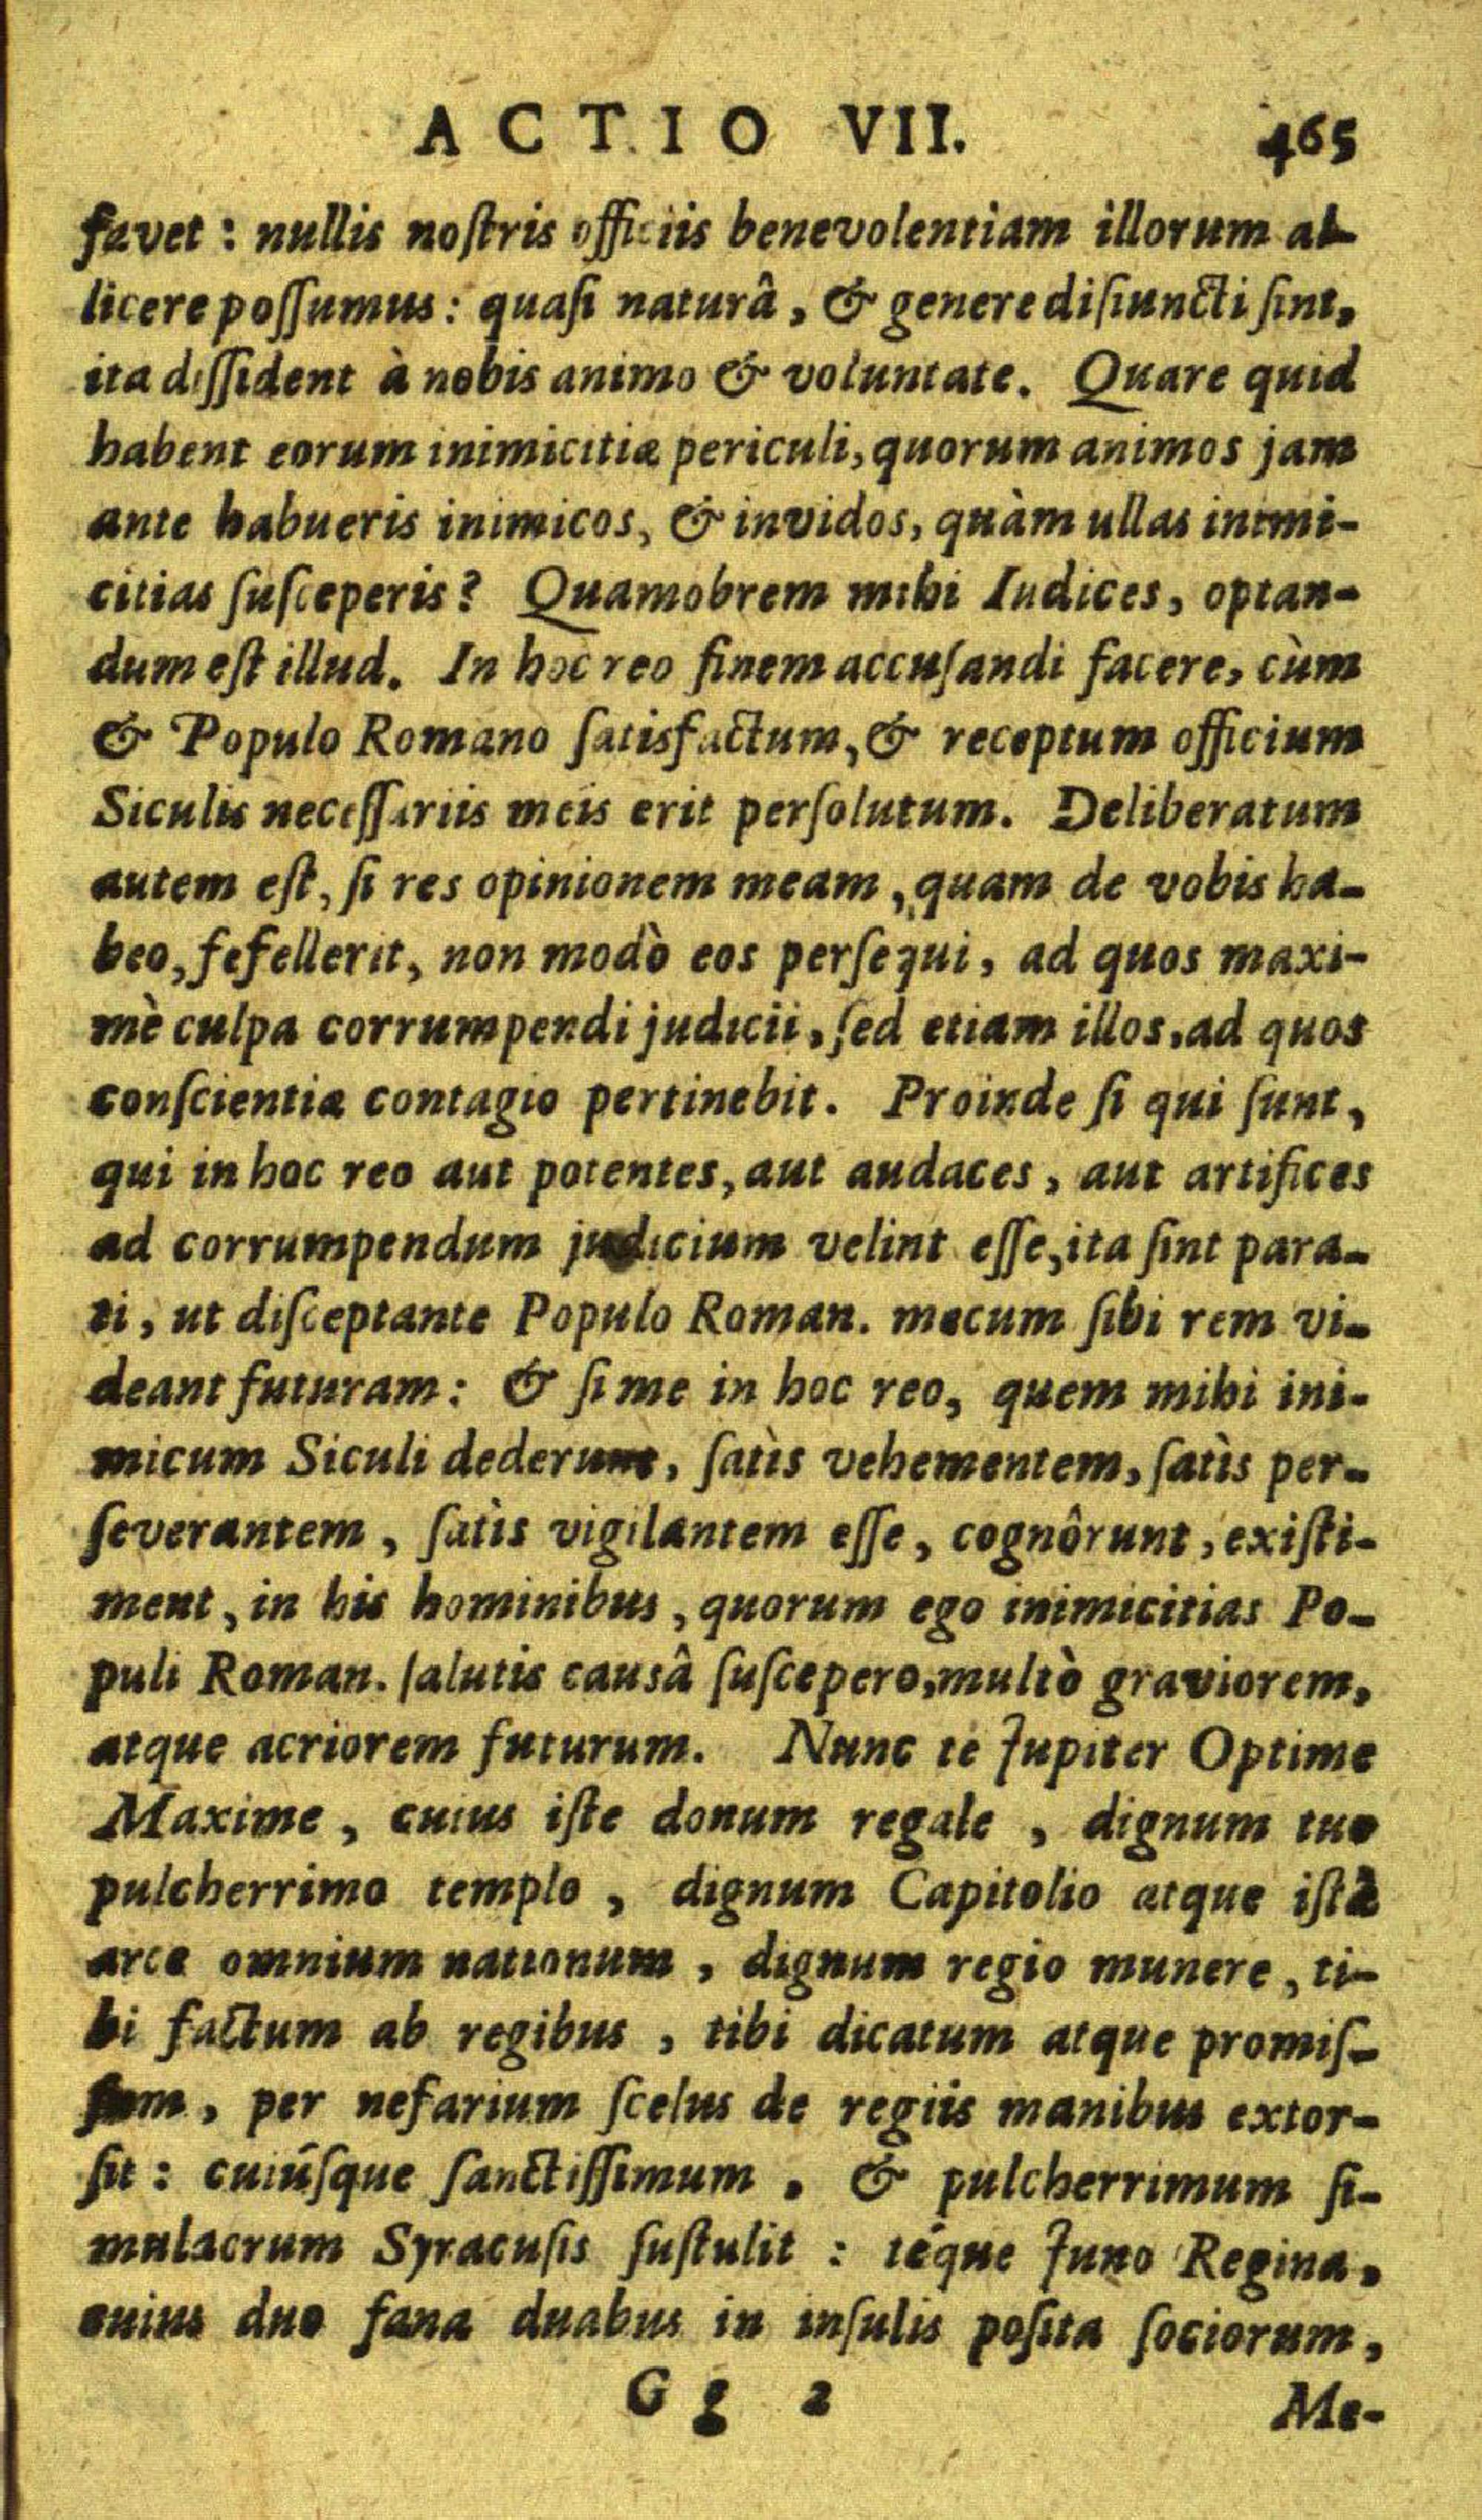 ACTIO VII. 465
favet : nullis noſtris officiis benevolentiam illorum al-
licere poſſumus : quaſi naturâ , & genere diſiuncti ſint,
ita diſſident à nobis animo & voluntate. Quare quid
habent eorum inimicitiæ periculi, quorum animos jam
ante habueris inimicos, & invidos, quàm ullas inimi-
citias ſuſceperis ? Quamobrem mihi Iudices, optan-
dum eſt illud. In hoc reo finem accuſandi facere, cùm
& Populo Romano ſatisfactum, & receptum officium
Siculis neceſſariis meis erit perſolutum. Deliberatum
autem eſt, ſi res opinionem meam , quam de vobis ha-
beo, fefellerit, non modò eos perſequi, ad quos maxi-
mè culpa corrumpendi judicii, ſed etiam illos, ad quos
conſcientiæ contagio pertinebit. Proinde ſi qui ſunt,
qui in hoc reo aut potentes, aut audaces , aut artifices
ad corrumpendum judicium velint eſſe, ita ſint para-
ti, ut diſceptante Populo Roman. mecum ſibi rem vi-
deant futuram : & ſi me in hoc reo, quem mihi ini-
micum Siculi dederunt, ſatìs vehementem, ſatìs per-
ſeverantem , ſatìs vigilantem eſſe , cognôrunt, exiſti-
ment, in his hominibus , quorum ego inimicitias Po-
puli Roman. ſalutis causâ ſuſcepero, multò graviorem,
atque acriorem futurum. Nunc te Jupiter Optime
Maxime , cuius iſte donum regale , dignum tuo
pulcherrimo templo , dignum Capitolio atque iſtâ
arce omnium nationum , dignum regio munere , ti-
bi factum ab regibus , tibi dicatum atque promiſ-
ſum , per nefarium ſcelus de regiis manibus extor-
ſit : cuiúſque ſanctiſſimum , & pulcherrimum ſi-
mulacrum Syracuſis ſuſtulit : téque Juno Regina,
cuius duo fana duabus in inſulis poſita ſociorum,
Gg 2 Me-